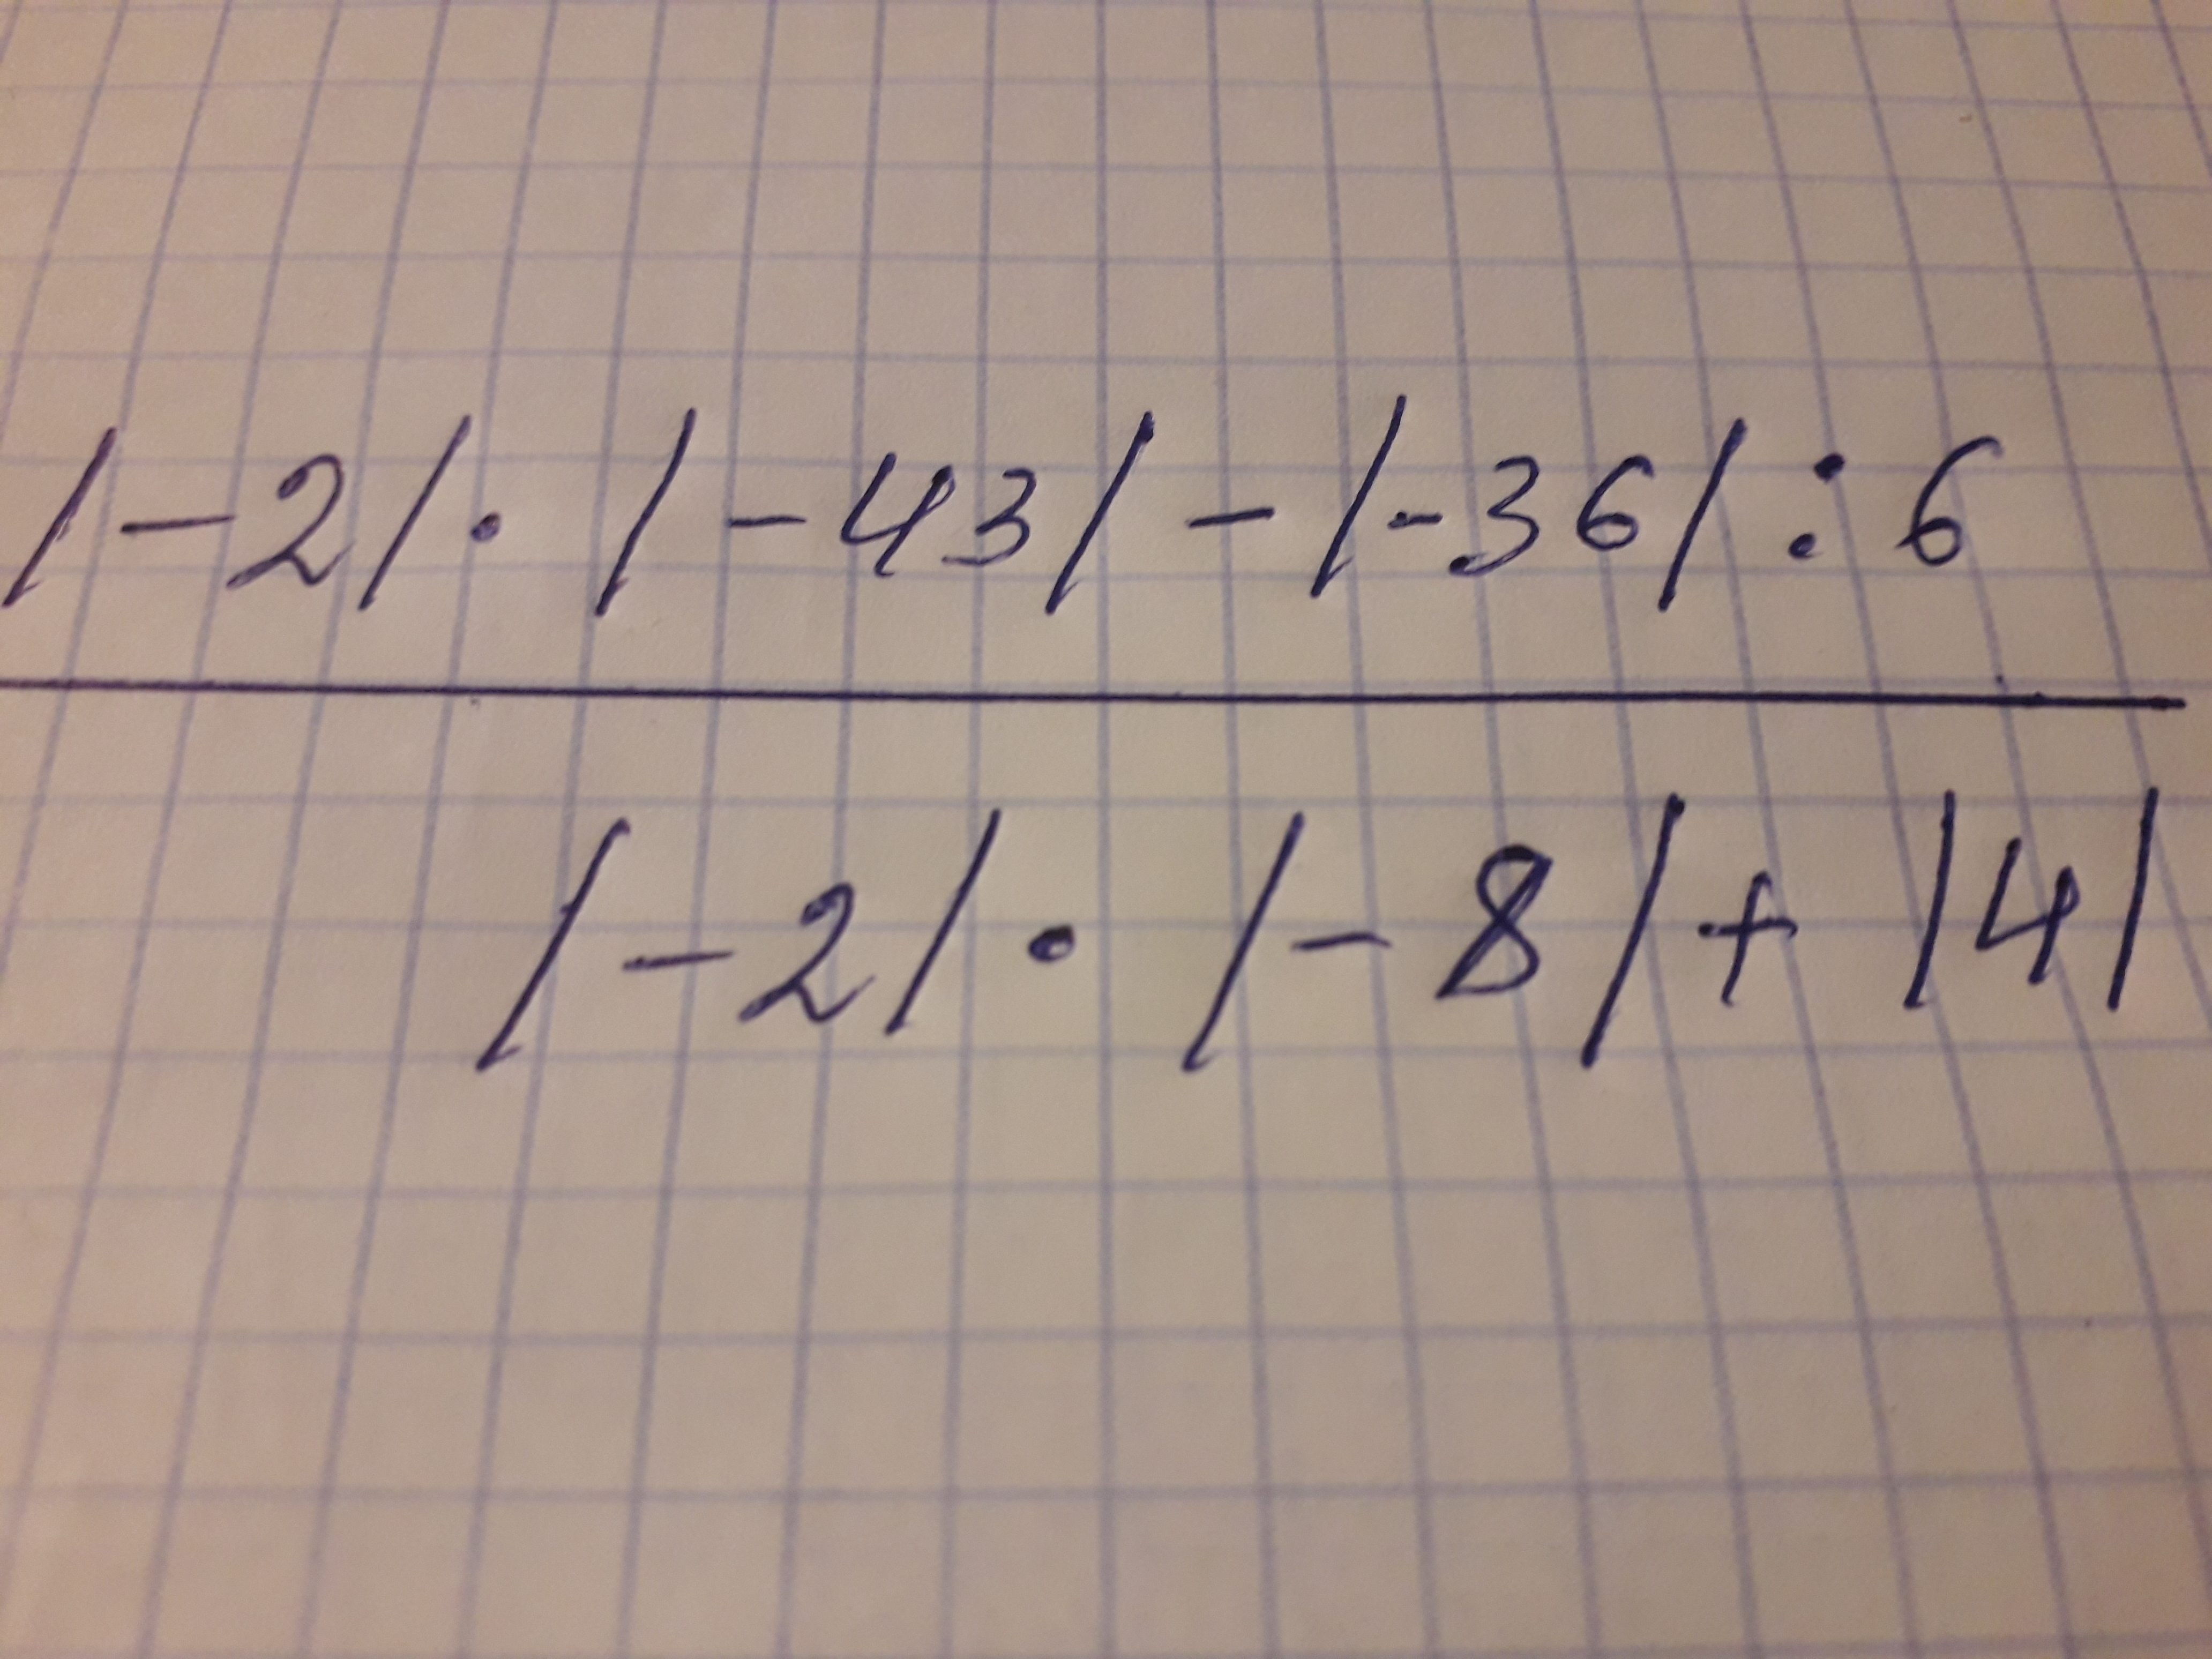 |-2|·|-43|-|-36|:6
|-2|·|-8|+|4|